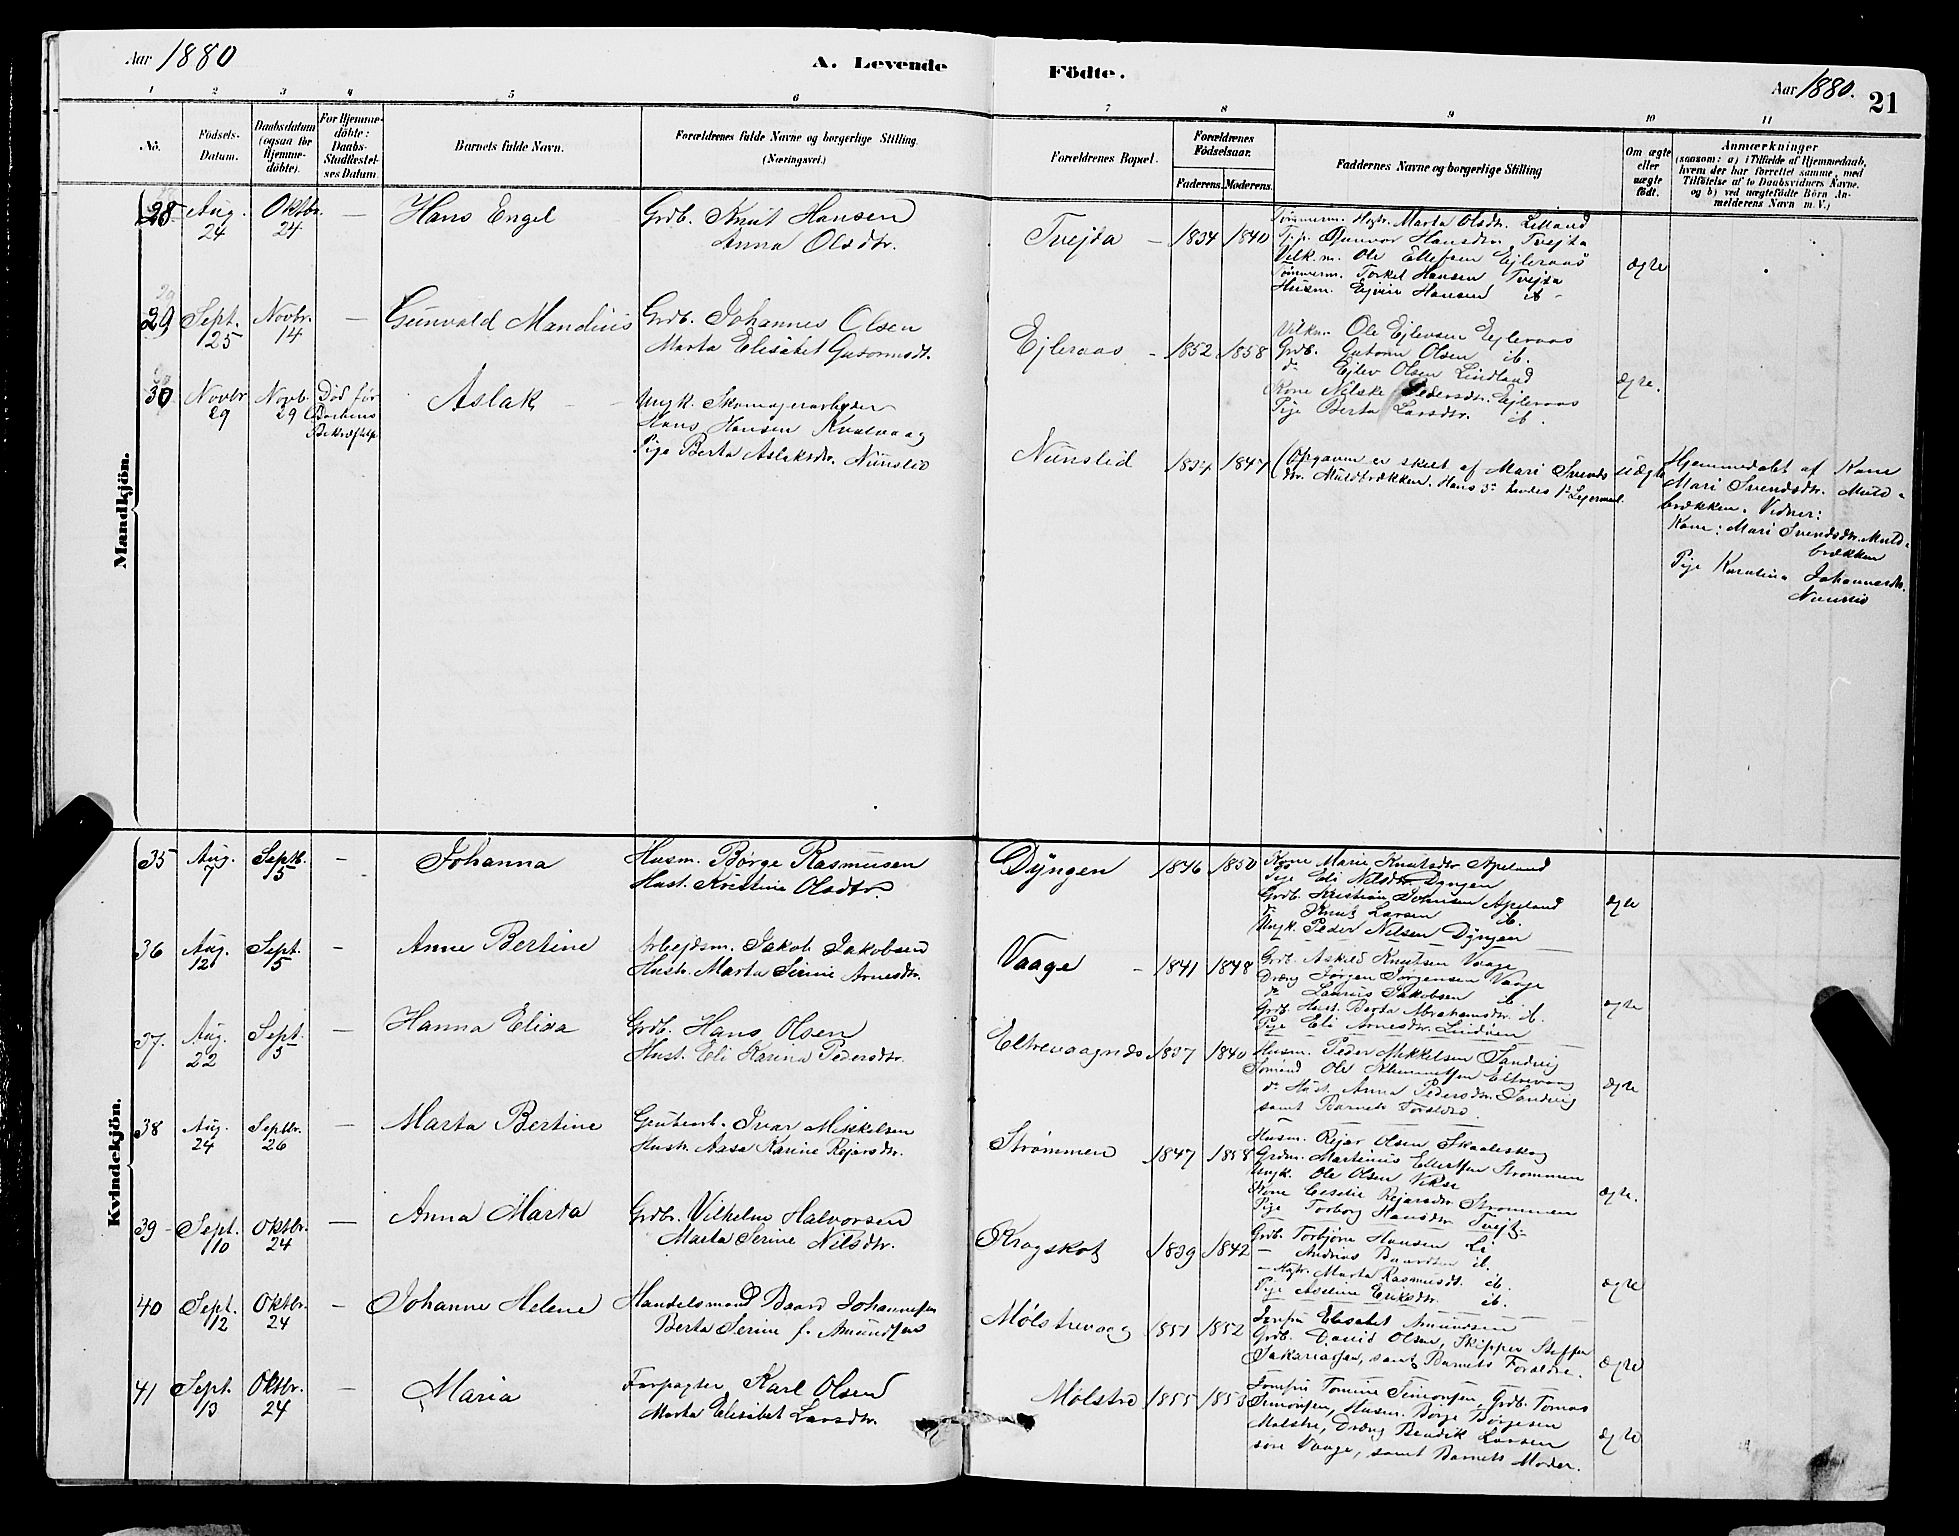 Aar 1880
A. Levende
Födte.
Aar 1880.
21
1 2 3 4 5 6 7 8 9 10 11
No.
Födsels-
Datum.
Daabsdatum
(ogsaa for
Hjemme-
döbte).
For Hjemme-
döbte:
Daabs-
Stadfæstel-
ses Datum.
Barnets fulde Navn.
Forældrenes fulde Navne og borgerlige Stilling.
(Næringsvei.)
Forældrenes Bopæl.
Forældrenes
Födselsaar.
Faderens. Moderens.
Faddernes Navne og borgerlige Stilling
Om ægte
eller
uægte
födt.
Anmærkninger
(saasom: a) i Tilfælde af Hjemmedaab,
hvem der har forrettet samme, med
Tilföielse af to Daabsvidners Navne,
og b) ved uægtefödte Börn An-
melderens Navn m. V.)
Mandkjön.
28
Aug.
24
Oktbr.
24
—
Hans Engel
Grdb. Knut Hansen
Anna Olsdtr.
Tvejta
1834 1840
Marta Olsdtr. Lilland
Gunvor Hansdtr. Tvejta
Vilk.m. Ole Ellefsen Ejleraas
Tømmerm. Torkel Hansen Tvejta
Husm. Ejvin Hansen ib
ægte
29
Sept.
25
Novbr.
14
—
Gunvald Mandius
Grdb. Johannes Olsen
Marta Elisabet Gutormsdt.
Ejleraas
1852 1858
Vilkm. Ole Ejlevsen Ejleraas
Grdb. Gutorm Olsen ib.
do Ejlev Olsen Lindland
Kone Nilske Pedersdtr. Ejleraas
Pige Berta Larsdtr. ib.
ægte.
30
Novbr
29
Novb.
29
Död før
Daabens
Bekræftelse
Aslak
Ungk. Skomagerarbejder
Hans Hansen Kvalvaag
Pige Berta Aslaksdtr. Nunslid
Nunslid
1834 1847
(Opgaven er skeet af Mari Svends
dtr. Muldbrækken. Hans 3die hendes 1ste Lejermaal.
uægte
Hjemmedøbt af Kone
Mari Svendsdtr. Muld-
brækken. Vidner:
Kone: Mari Svendsdtr. Muld-
brækken
Pige Karolina Johannesdtr.
Nunslid
Kvindekjön.
35
Aug.
7
Septb.
5
—
Johanna
Husm. Børge Rasmusen
Hust. Kristine Olsdtr.
Dyngen
1846 1850
Kone Marie Knutsdtr Apeland
Pige Eli Nilsdtr. Dyngen
Grdb. Kristian Johnsen Apeland
do Knut Larsen ib.
Ungk. Peder Nilsen Dyngen
ægte
36
Aug.
12
Sept.
5
—
Anne Bertine
Arbejdsm. Jakob Jakobsen
Hustr. Marta Serine Arnesdtr.
Vaage
1841 1848
Grdb. Askild Knutsen Vaage
Dreng Jørgen Jørgensen Vaage
do Laurus Jakobsen ib.
Grdb. Hust. Berta Abrahamsdtr. ib.
Pige Eli Arnesdtr. Lindøen
ægte
37.
Aug.
22
Sept.
5
—
Hanna Elisa
Grdb. Hans Olsen
Hust. Eli Karina Pedersdtr.
Eltrevaagnes
1837 1840
Husm. Peder Mikkelsen Sandvig
Sømand Ole Klemmetsen Eltrevaag
do Hust. Anna Pedersdtr. Sandvig
samt Barnets Forældre.
ægte
38
Aug.
24
Septbr.
26
—
Marta Bertine
Grubearb. Ivar Mikkelsen
Hustr. Aasa Karine Rejarsdtr.
Strømmen
1847 1858
Husm. Rejar Olsen Skaaleskog
Grdm. Martinus Ellertsen Strømmen
Ungk. Ole Olsen Vikse
Kone Cecelie Rejarsdtr. Strømmen
Pige Torborg Hansdtr. Tvejt
ægte.
39
Sept.
10
Oktbr.
24
—
Anna Marta
Grdbr. Vilhelm Halvorsen
Marta Serine Nilsdtr.
Kragskot
1839 1842
Grdb. Torbjørn Hansen Li
— Andreas Baardsen ib.
— Hustr. Marta Rasmusdt. ib.
Pige Aveline Eriksdtr. ib.
ægte
40
Sept.
12
Oktbr.
24
—
Johanne Helene
Handelsmand Baard Johannesen
Berta Serine f. Amundsen
Mølstrevaag
1851 1852
Jomfru Elisabet Amundsen
Grdb. David Olsen, Skipper Steffen
Sakariassen, samt Barnets Forældre.
ægte
41
Sept.
13
Oktbr.
24
—
Maria
Forpagter Karl Olsen
Marta Elisabet Larsdtr.
Mølstre
1855 1853
Jomfru Tomine Simonsen, Grdb. Tomas
Simonsen, Husm. Børge Børgesen
Mølstre, Dreng Bendik Larsen
søre Vaage, samt Barnets Moder.
ægte